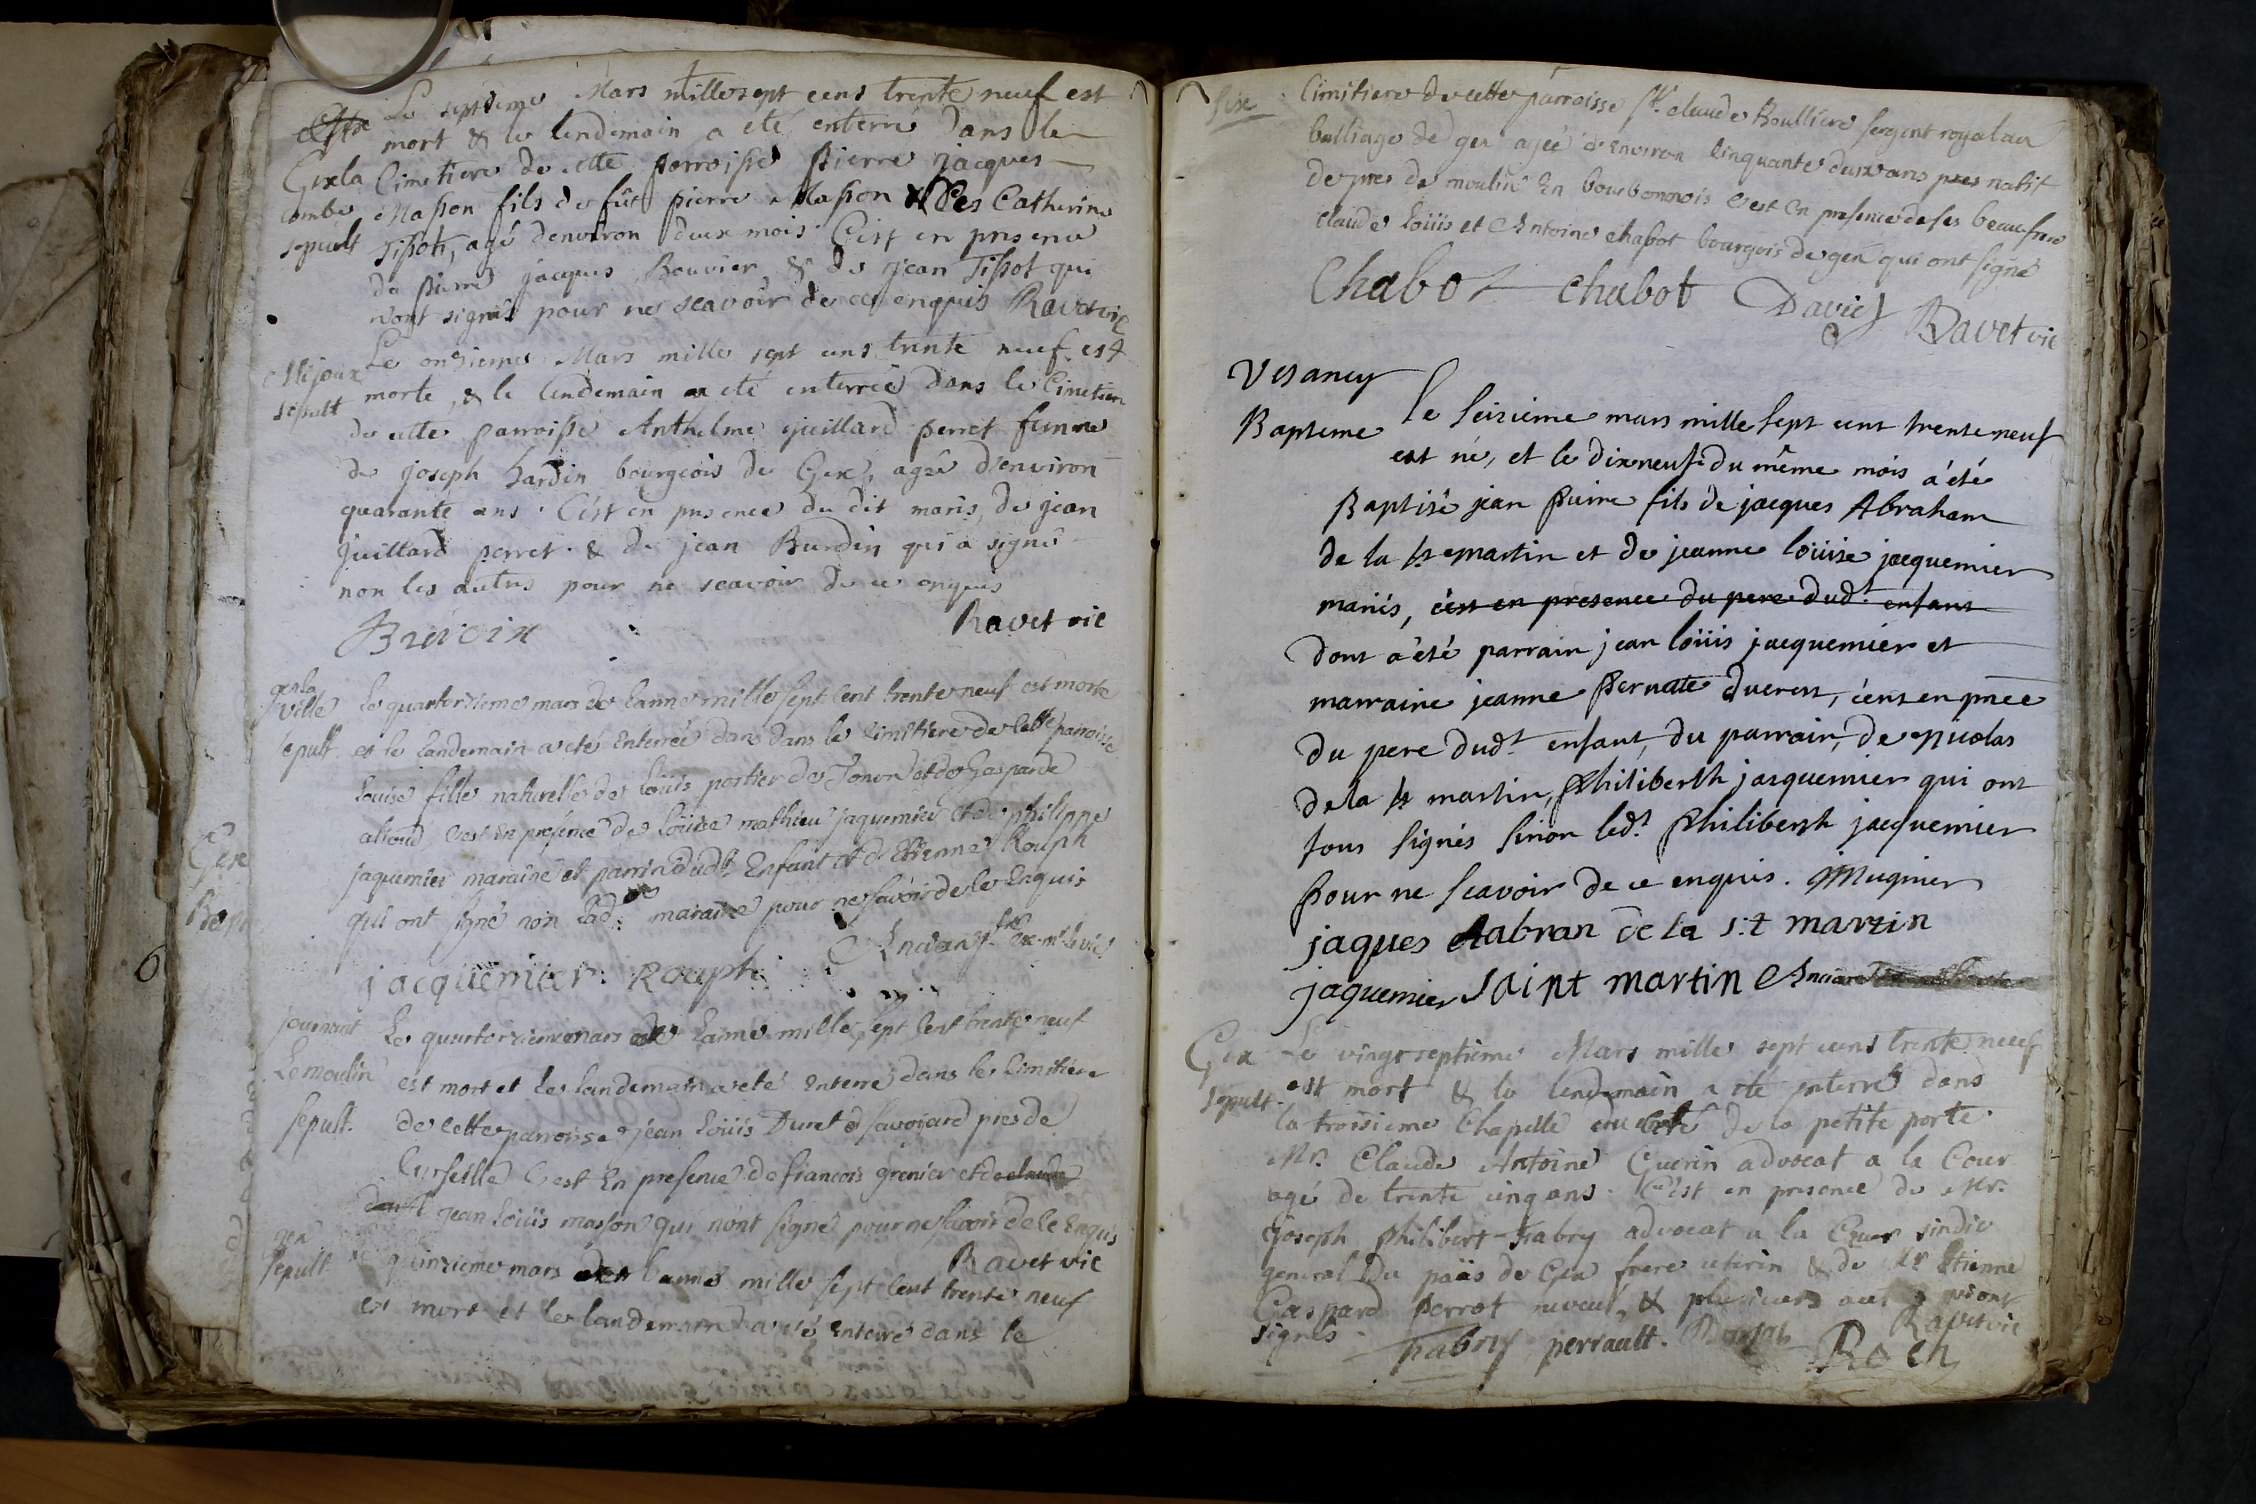 Le septieme Mars mille sept cens trente neuf est
mort & le lendemain a eté enterré dans le
Gex la Cimetiere de cette parroisse Pierre jacques
combe Masson fils de fût pierre Masson & Catherine
sepult Tissot, agé denviron deux mois. C'est en presence
de pierre jacques Bouvier & de jean Tissot qui
n'ont signés pour ne scavoir de ce enquis Ravet vic
Le onzieme Mars mille sept cens trente neuf est
Mijoux
sepult morte, & le lendemain a eté enterrée dans le Cimetiere
de cette parroisse Anthelme Guillard perret femme
de joseph hardin bourgeois de Gex, agée d'environ
quarante ans. C'est en presence du dit maris, de jean
Guillard perret & de jean Burdin qui a signé
non les autres pour ne scavoir de ce enquis
Ravet vic
gex la
ville le quatorzieme mars de l'anné mille sept cent trente neuf est morte
sepult. et le landemain a eté enterrée dans dans le cimitiere de cette parroisse
louise fille naturelle de loüis portier de Tonon et de gasparde
c'est en presence de loüise mathieu jaquemier et de philippe
jaquemier maraine et parrin dudt enfant et d'etienne Rouph
qui ont signé non lad. maraine pour ne savoir de ce enquis
Ancian
jacquemier Rouph
journant
Le moulin Le quatorzieme mars de l'anné mille sept cent trente neuf
est mort et le landemain a eté enterré dans le cimitiere
sepult. de cette parroisse jean loüis Duret savoiard pres de
c'est en presence de francois grenier et de
jean loüis masson qui n'ont signé pour ne savoir de ce enquis
Ravet vic
gex
sepult quinzieme mars de l'anné mille sept cent trente neuf
est mort et le landemain a eté enterré dans le
Gex cimitiere de cette parroisse Sr. claude Boulliere sergent royal au
balliage de gex agée d'environ cinquante deux ans natif
de pres de moulin en bourbonnois c'est en presence de ses beaufrere
claude loüis et Antoine chabot bourgois de gex qui ont signé
Chabot Chabot David
Ravet vic
Vesancy
Bapteme le seizieme mars mille sept cent trente neuf
est né, et le dixneuf du même mois a été
Baptisé jean pierre fils de jacques Abraham
de la st martin et de jeanne loüise jacquemier
mariés, c'est en presence du pere dudt enfant
dont a été parrain jean loüis jacquemier et
marraine jeanne pernate ducrest, c'est en pnce
du pere dudt enfant, du parrain, de nicolas
de la st martin, philiberth jacquemier qui ont
tous signés sinon ledt philiberth jacquemier
pour ne scavoir de ce enquis. jMugnier
jaques Aabran de la s:t martin
jaquemier saint martin Ancian
Gex Le vingt septieme Mars mille sept cens trente neuf
sepult. est mort & le lendemain a eté enterré dans
la troisieme Chapelle du coté de la petite porte
Mr. Claude Antoine Guerin advocat a la Cour
agé de trente cinq ans. C'est en presence de Mr.
joseph philibert fabry advocat a la Cour sindic
general du païs de Gex frere uterin & de Mr Etienne
Gaspard perrot neveu, & plusieurs qui ont
signés. Ravet vic
fabry perrault. Roch